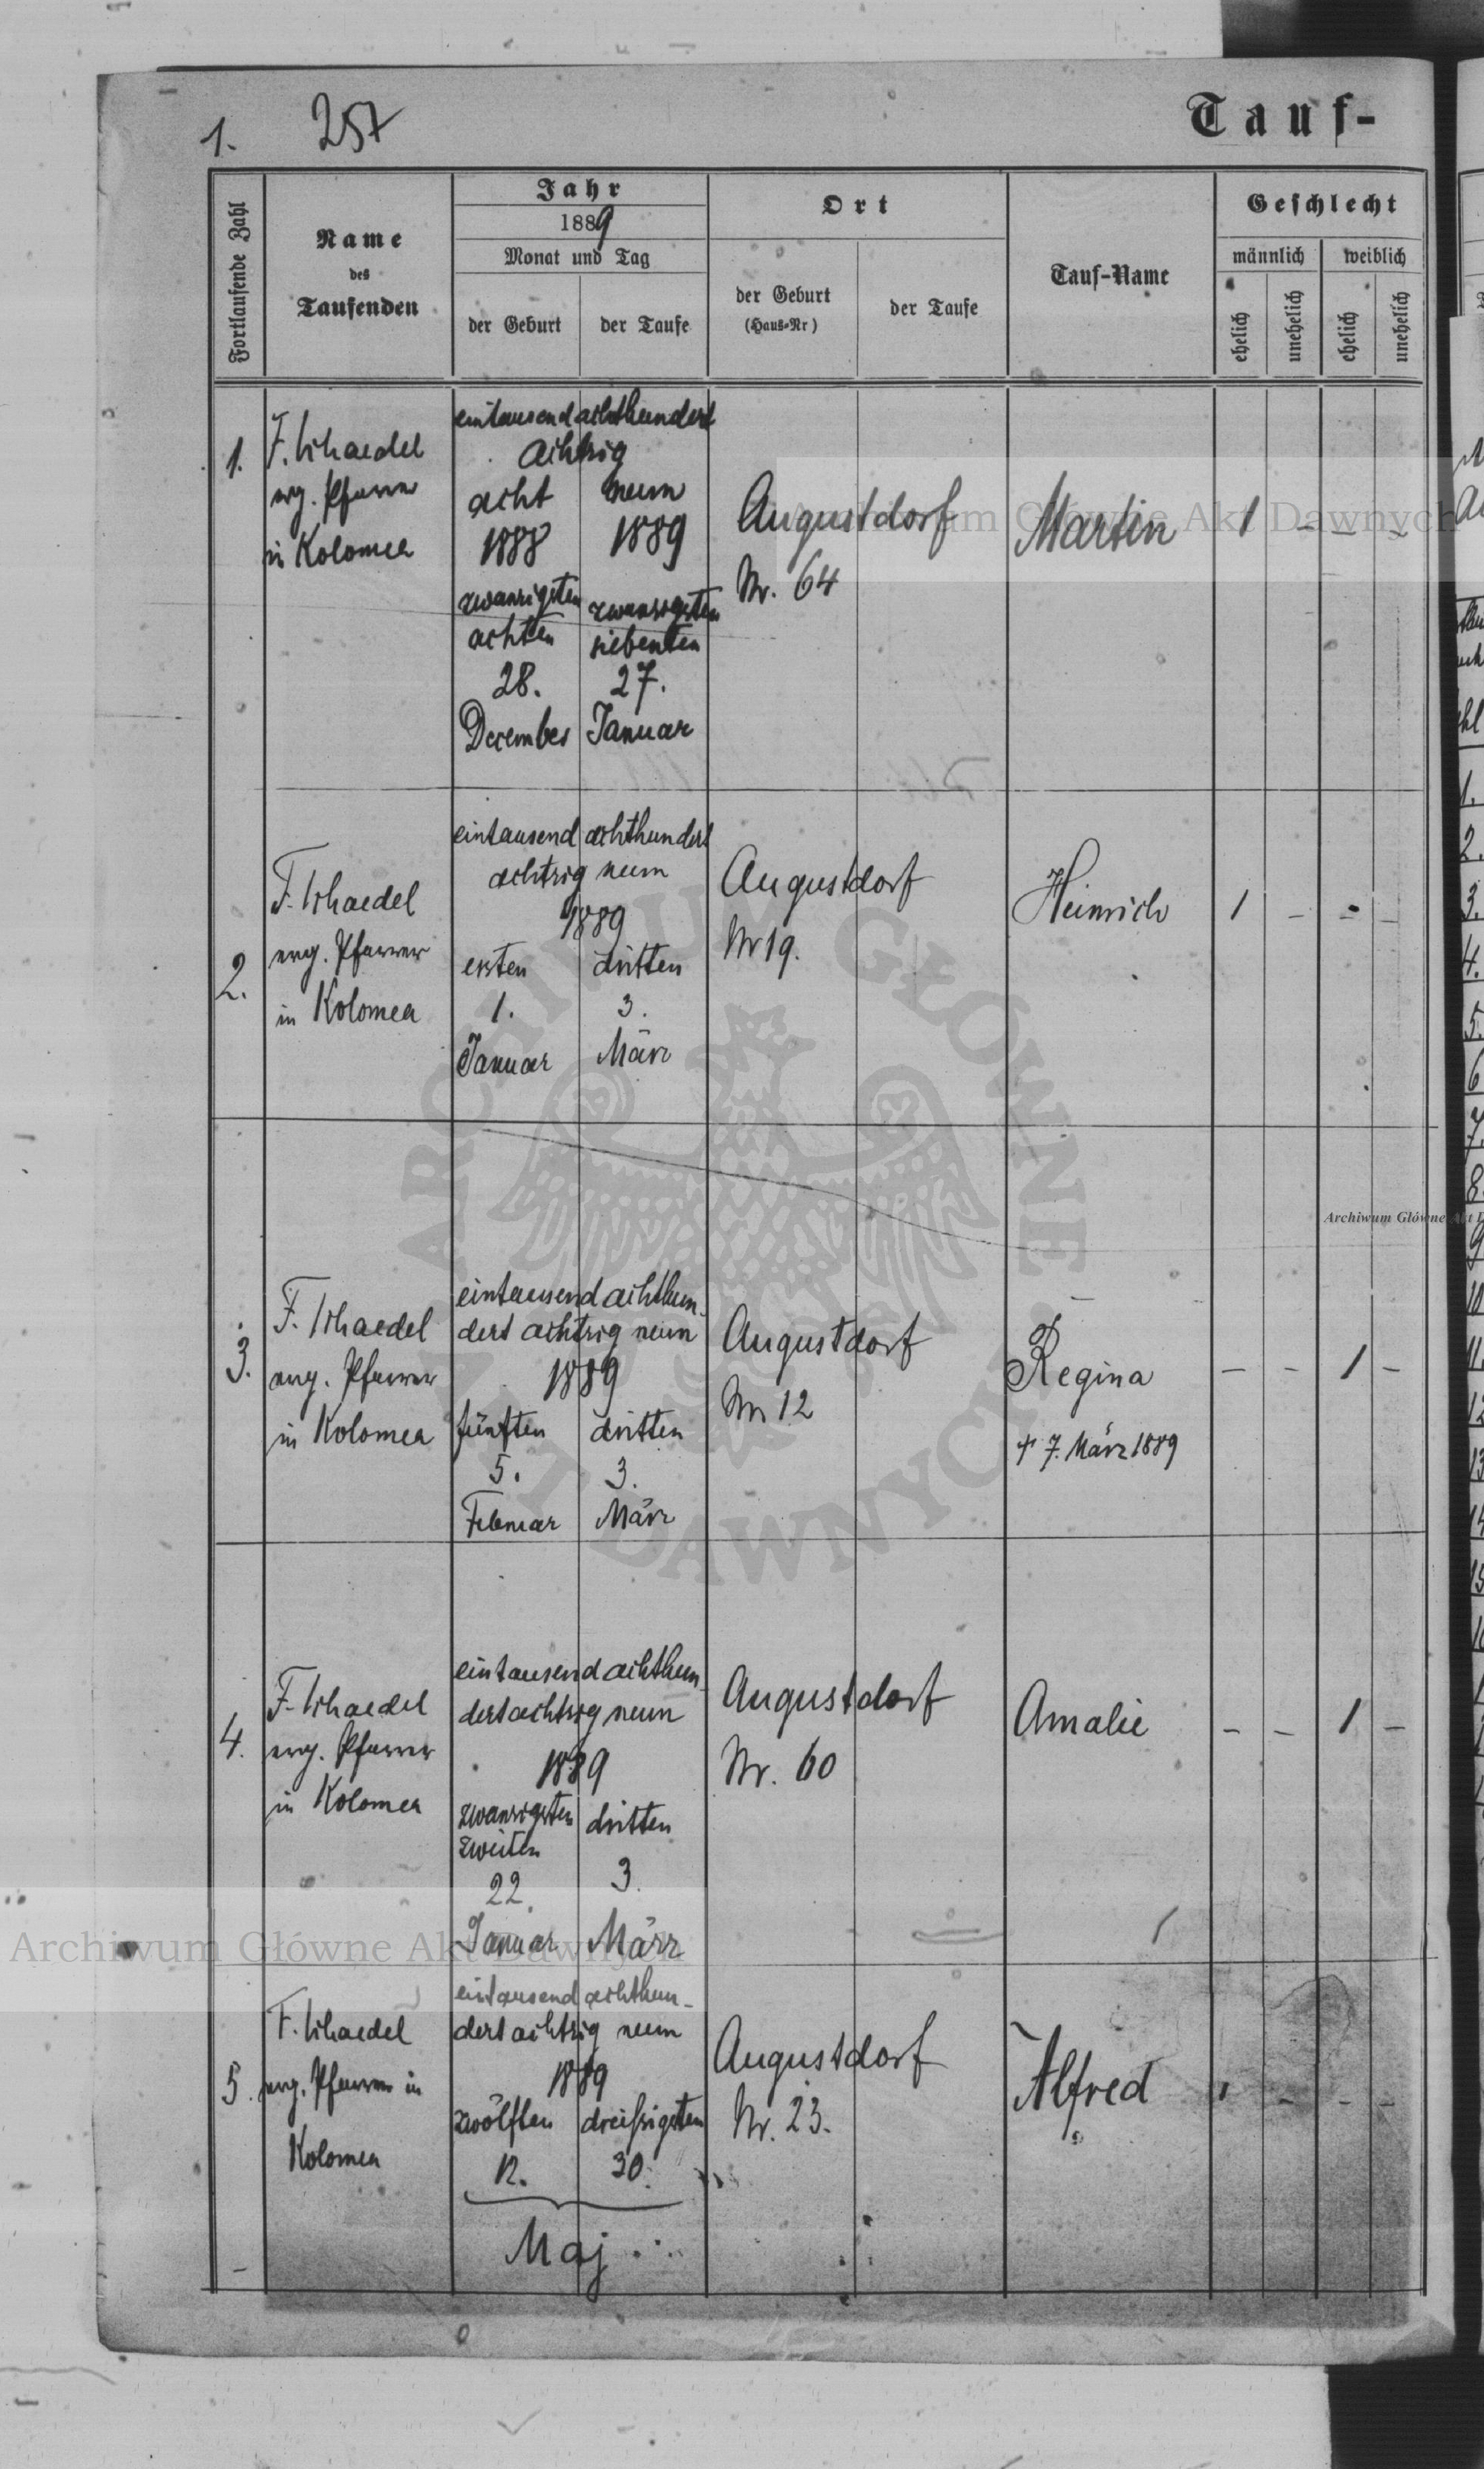 1. 257
Tauf-
Fortlaufende Zahl
Name
des
Taufenden
Jahr
1889
Monat und Tag
der Geburt
der Taufe
Ort
der Geburt
(Haus-Nr)
der Taufe
Tauf-Name
Geschlecht
männlich
weiblich
ehelich
unehelich
ehelich
unehelich
1.
F. Schaedel
evg. Pfarrer
in Kolomea
eintausend achthundert
achtzig
acht neun
1888 1889
zwanzigsten zwanzigsten
achten siebenten
28. 27.
December Januar
Augustdorf
Nr. 64
Martin
1 - - -
2.
F. Schaedel
evg. Pfarrer
in Kolomea
eintausend achthundert
achtzig neun
1889
ersten dritten
1. 3.
Januar März
Augustdorf
Nr 19.
Heinrich
1 - - -
3.
F. Schaedel
evg. Pfarrer
in Kolomea
eintausend achthun-
dert achtzig neun
1889
fünften dritten
5. 3.
Februar März
Augustdorf
Nr 12
Regina
† 7. März 1889
- - 1 -
4.
F. Schaedel
evg. Pfarrer
in Kolomea
eintausend achthun-
dert achtzig neun
1889
zwanzigsten dritten
zweiten
22. 3.
Januar März
Augustdorf
Nr. 60
Amalie
- - 1 -
5.
F. Schaedel
evg. Pfarrer in
Kolomea
eintausend achthun-
dert achtzig neun
1889
zwölften dreißigsten
12. 30.
Maj
Augustdorf
Nr. 23.
Alfred
1 - - -
Archiwum Główne Akt Dawnych
ARCHIWUM GŁÓWNE AKT DAWNYCH
Archiwum Główne Akt
Archiwum Główne Akt Dawnych